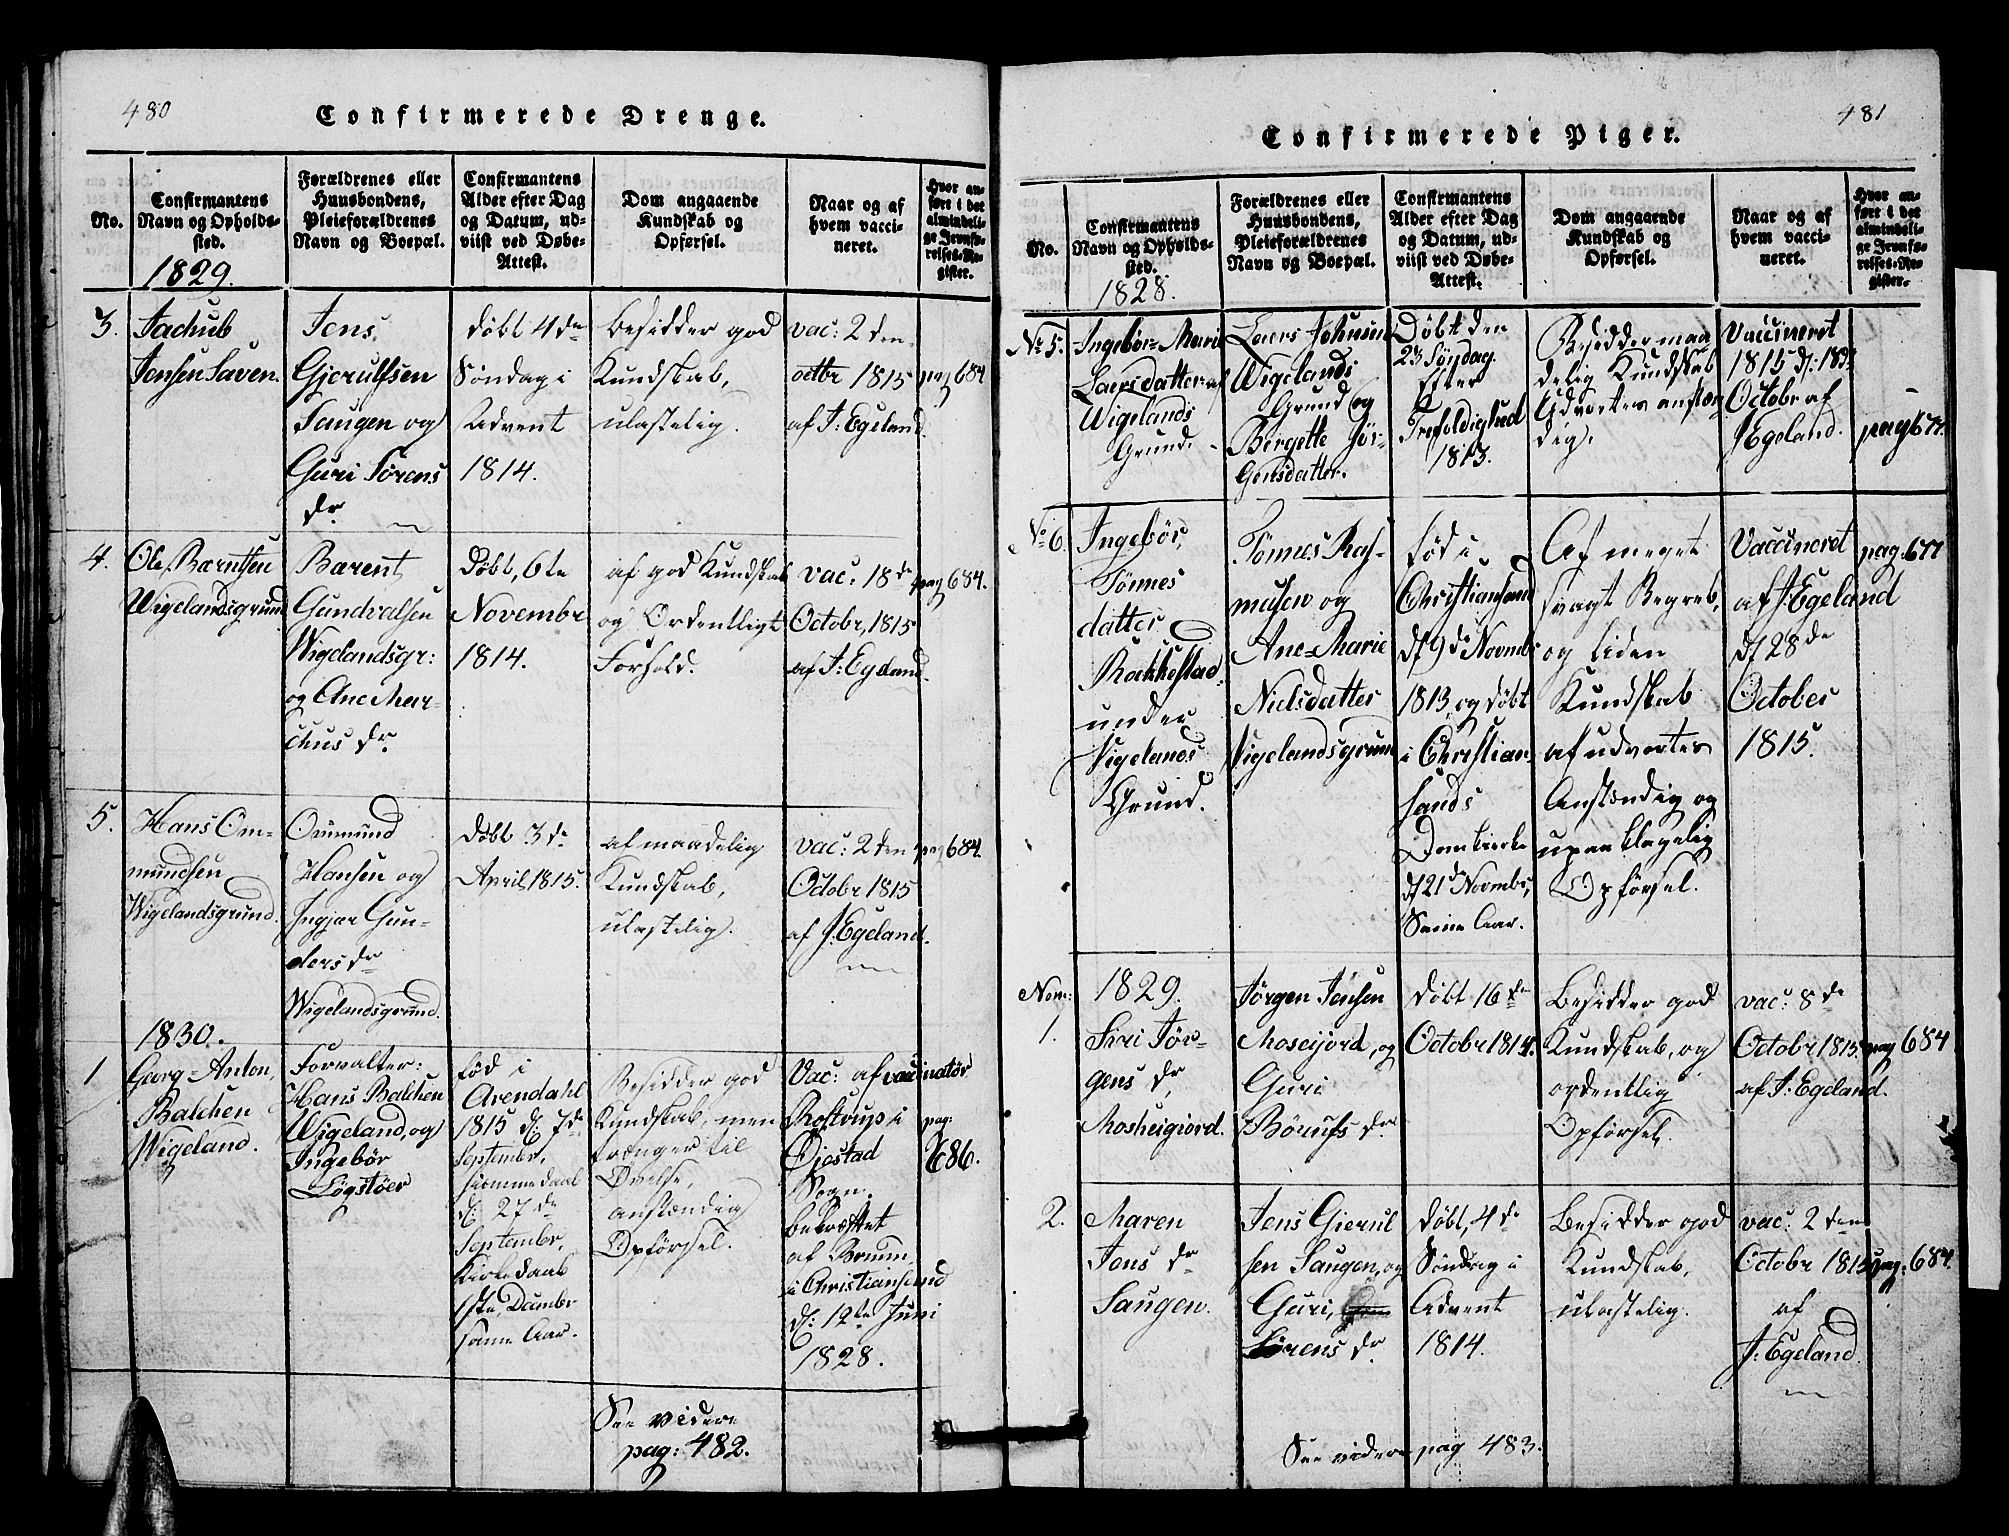 480
Confirmerede Drenge.
No.
Confirmantens
Navn og Opholds-
sted.
1829.
Forældrenes eller
Huusbondens,
Pleieforældrenes
Navn og Boepæl.
Confirmantens
Alder efter Dag
og Datum, ud-
viist ved Døbe-
Attest.
Dom angaaende
Kundskab og
Opførsel.
Naar og af
hvem vacci-
neret.
Hvor an-
ført i det
almindeli-
ge Jevnfø-
relses-Re-
gister.
3.
Jachub
Jensen Saven.
Jens
Gjerulfsen
Saugen og
Guri Sørens
dr.
døbt 4de
Søndag i
Advent
1814.
Besidder god
Kundskab,
ulastelig.
vac: 2den
octbr 1815
af J: Egeland.
pag 684
4.
Ole Bærntsen
Wigelandsgrund
Barent
Gundvalsen
Wigelandsgr:
og Ane Mar-
chus dr.
Døbt, 6te
Novembr
1814.
af god Kundskab
og Ordentligt
Forhold.
vac: 18de
Octobr, 1815
af J: Egeland.
pag 684.
5.
Hans Om-
mundsen
Wigelandsgrund.
Ommund
Hansen og
Ingjær Gun-
ders dr
Wigelandsgrund.
døbt 3de
April 1815.
af maadelig
Kundskab,
ulastelig.
vac: 2den
Octobr 1815
af J. Egeland.
pag 684.
1830.
1
Georg=Anton,
Balchen
Wigeland.
Forvalter:
Hans Balchen
Wigeland, og
Ingebör
Løgstøer
fød i
Arendahl
1815 d: 7de
September,
hiemmedaab
d: 27de
September,
Kirkedaab
1ste Decmbr
samme Aar.
Besidder god
Kundskab, men
trænger til
Øvelse,
anstændig
Opførsel.
Vac: af vaccinatör
Rostrup i
Øiestad
Sogn.
bekræftet
af Brumm
i Christiansand
d: 12te Juni
1828.
pag:
686.
See videre
pag: 482.
481
Confirmerede Piger.
No.
Confirmantens
Navn og Opholds-
sted.
1828.
Forældrenes eller
Huusbondens,
Pleieforældrenes
Navn og Boepæl.
Confirmantens
Alder efter Dag
og Datum, ud-
viist ved Døbe-
Attest.
Dom angaaende
Kundskab og
Opførsel.
Naar og af
hvem vacci-
neret.
Hvor an-
ført i det
almindeli-
ge Jevnfø-
relses-Re-
gister.
No 5.
Ingebör=Marie
Laersdatter af
Wigelands
Grund.
Laers Johnsen
Wigelands
Grund og
Bergette Jör-
Gensdatter.
Døbt den
23 Søndag
Efter
Trefoldighed
1813.
Besidder maa
delig Kundskab
Udvortes anstæn
dig.
Vaccineret
1815 d: 18de
Octobr af
J Egeland.
pag 677.
No 6.
Ingebör,
Tönnes
datter
Rakkestad
under
Vigelands
Grund.
Tönnes Ras-
musen og
Ane=Marie
Nielsdatter
Vigelandsgrund
född i
Christiansand
d: 9de Novmbr
1813, og døbt
i Christian-
sands
Domkirke
d: 21de Novmbr,
Samme Aar.
Af meget
svagt Begreb,
og liden
Kundskab
af udvortes
Anstændig og
upaaklagelig
Opförsel.
Vaccineret
af J. Egeland
d: 28de
October
1815.
pag. 677
Nom:
1829.
1.
Siri Jör-
gens dr,
Mosheigiord.
Jörgen Jensen
Moseijord, og
Guri
Börufs dr.
døbt 16de
Octobr 1814.
Besidder god
Kundskab, og
ordentlig
Opførsel.
vac: 8de
Octobr 1815.
af J: Egeland.
pag 684
2.
Maren
Jens dr
Saugen.
Jens Gierul
sen Saugen, og
Guri,
Sörens dr
døbt, 4de
Søndag i
Advent
1814.
Besidder god
Kundskab,
ulastelig.
vac: 2den
Octobr 1815
af
J: Egeland.
pag: 684
See videre pag 483.